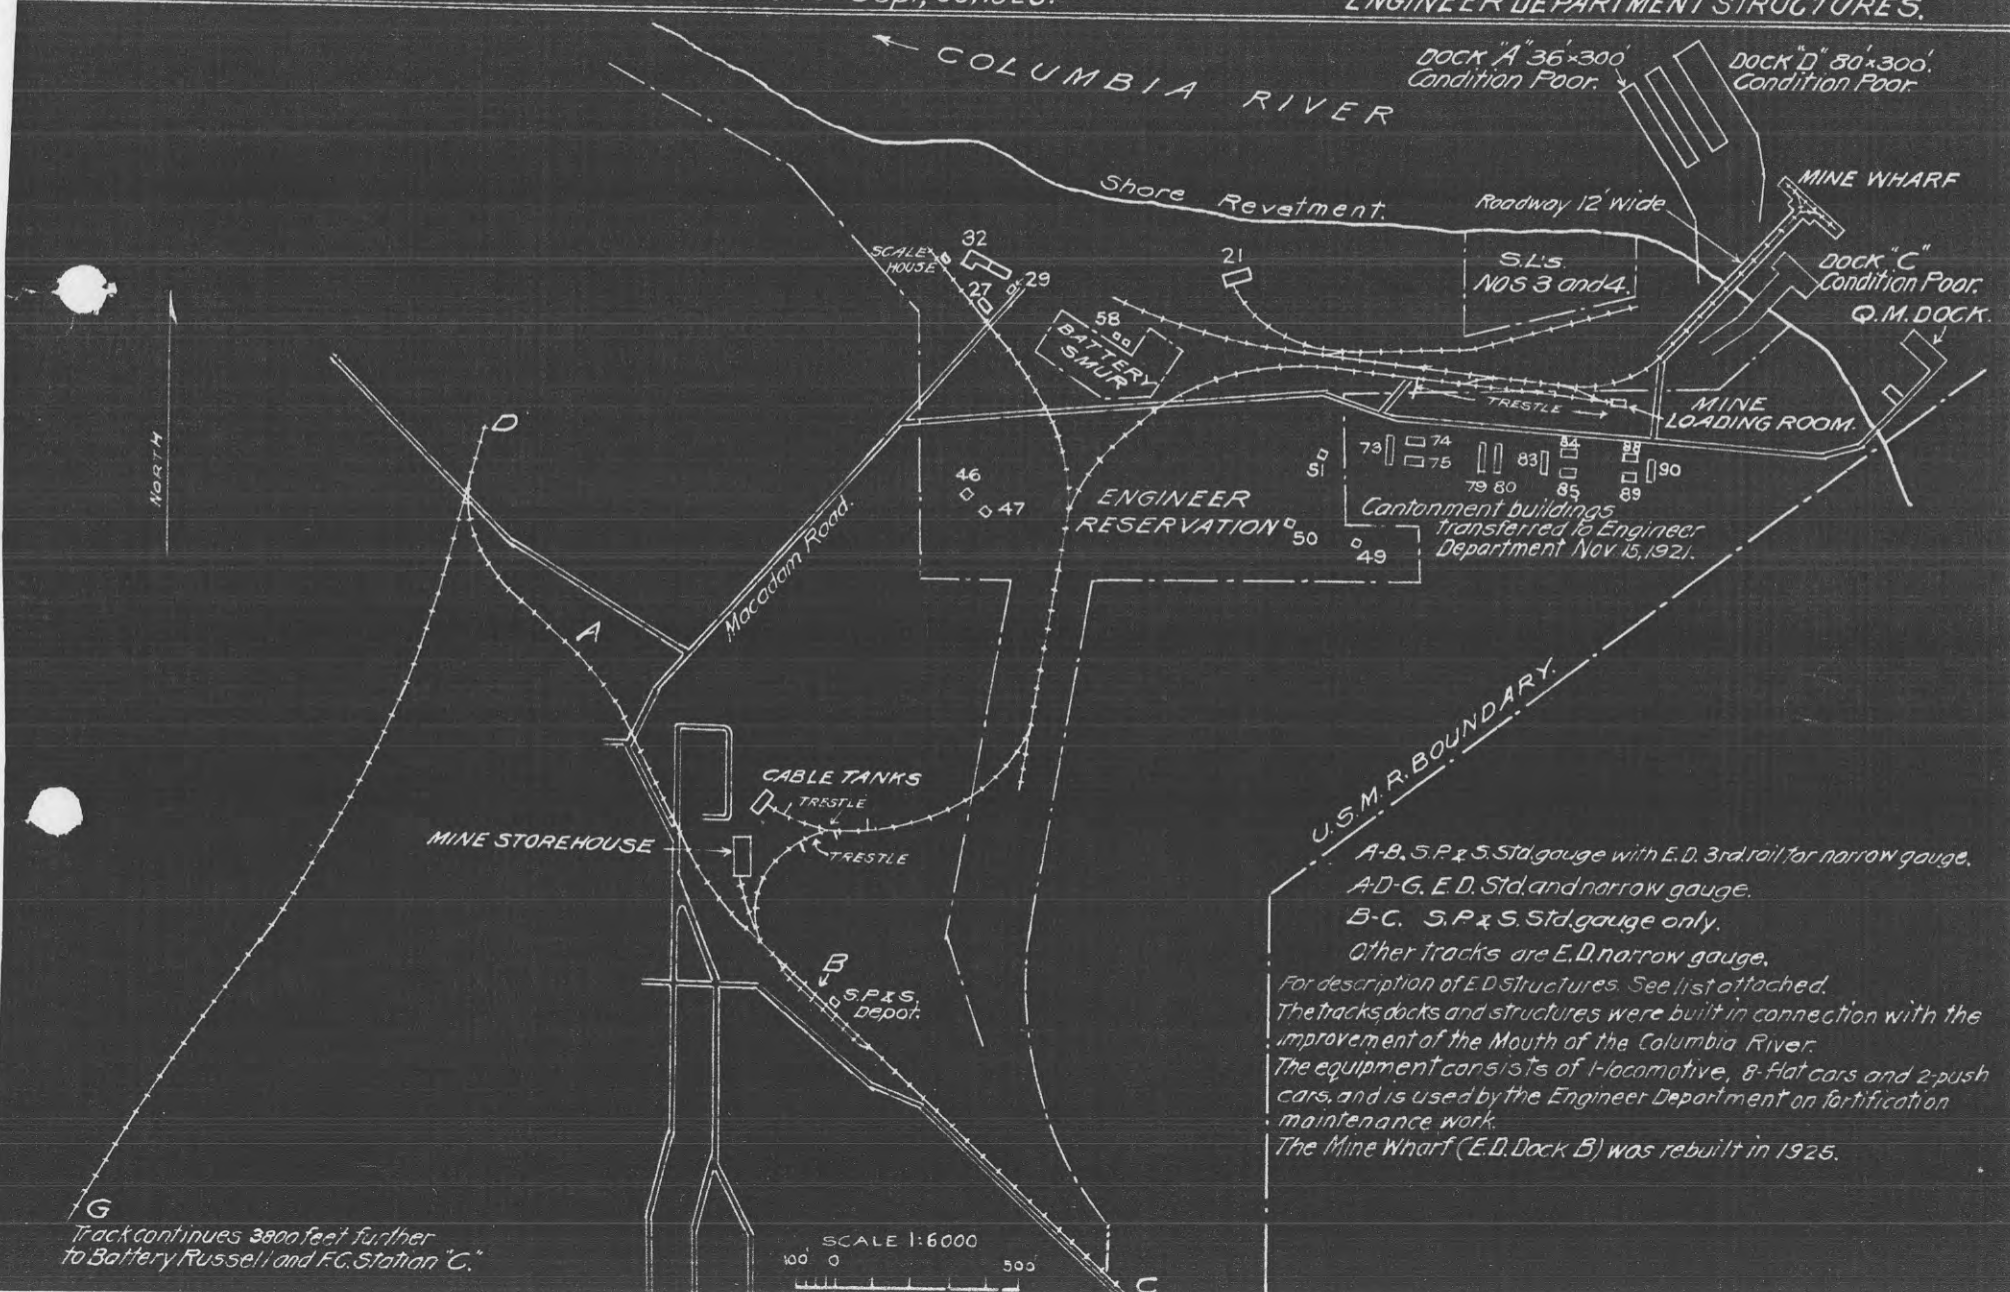 ENGINEER DEPARTMENT STRUCTURES.
COLUMBIA RIVER
DOCK "A" 36'×300'
Condition Poor.
DOCK "D" 80'×300'.
Condition Poor.
MINE WHARF
Shore Revetment.
Roadway 12' wide
SCALE
HOUSE
32
29
27
21
S.L's.
NOS 3 and 4.
DOCK "C"
Condition Poor.
Q.M. DOCK.
58
BATTERY
SMUR
TRESTLE
MINE
LOADING ROOM.
NORTH
D
46
47
Macadam Road.
ENGINEER
RESERVATION
51
50
49
73
74
75
79 80
83
84
85
88
89
90
Cantonment buildings
transferred to Engineer
Department Nov. 15, 1921.
A
U.S.M.R. BOUNDARY.
CABLE TANKS
TRESTLE
TRESTLE
MINE STOREHOUSE
B
S.P.& S.
Depot.
A-B. S.P.& S. Std. gauge with E.D. 3rd. rail for narrow gauge.
A-D-G. E.D. Std. and narrow gauge.
B-C. S.P.& S. Std. gauge only.
Other tracks are E.D. narrow gauge.
For description of E.D structures. See list attached.
The tracks, docks and structures were built in connection with the
improvement of the Mouth of the Columbia River.
The equipment consists of 1-locomotive, 8-flat cars and 2-push
cars, and is used by the Engineer Department on fortification
maintenance work.
The Mine Wharf (E.D. Dock B) was rebuilt in 1925.
G
Track continues 3800 feet further
to Battery Russell and F.C. Station "C."
SCALE 1:6000
100' 0 500'
C